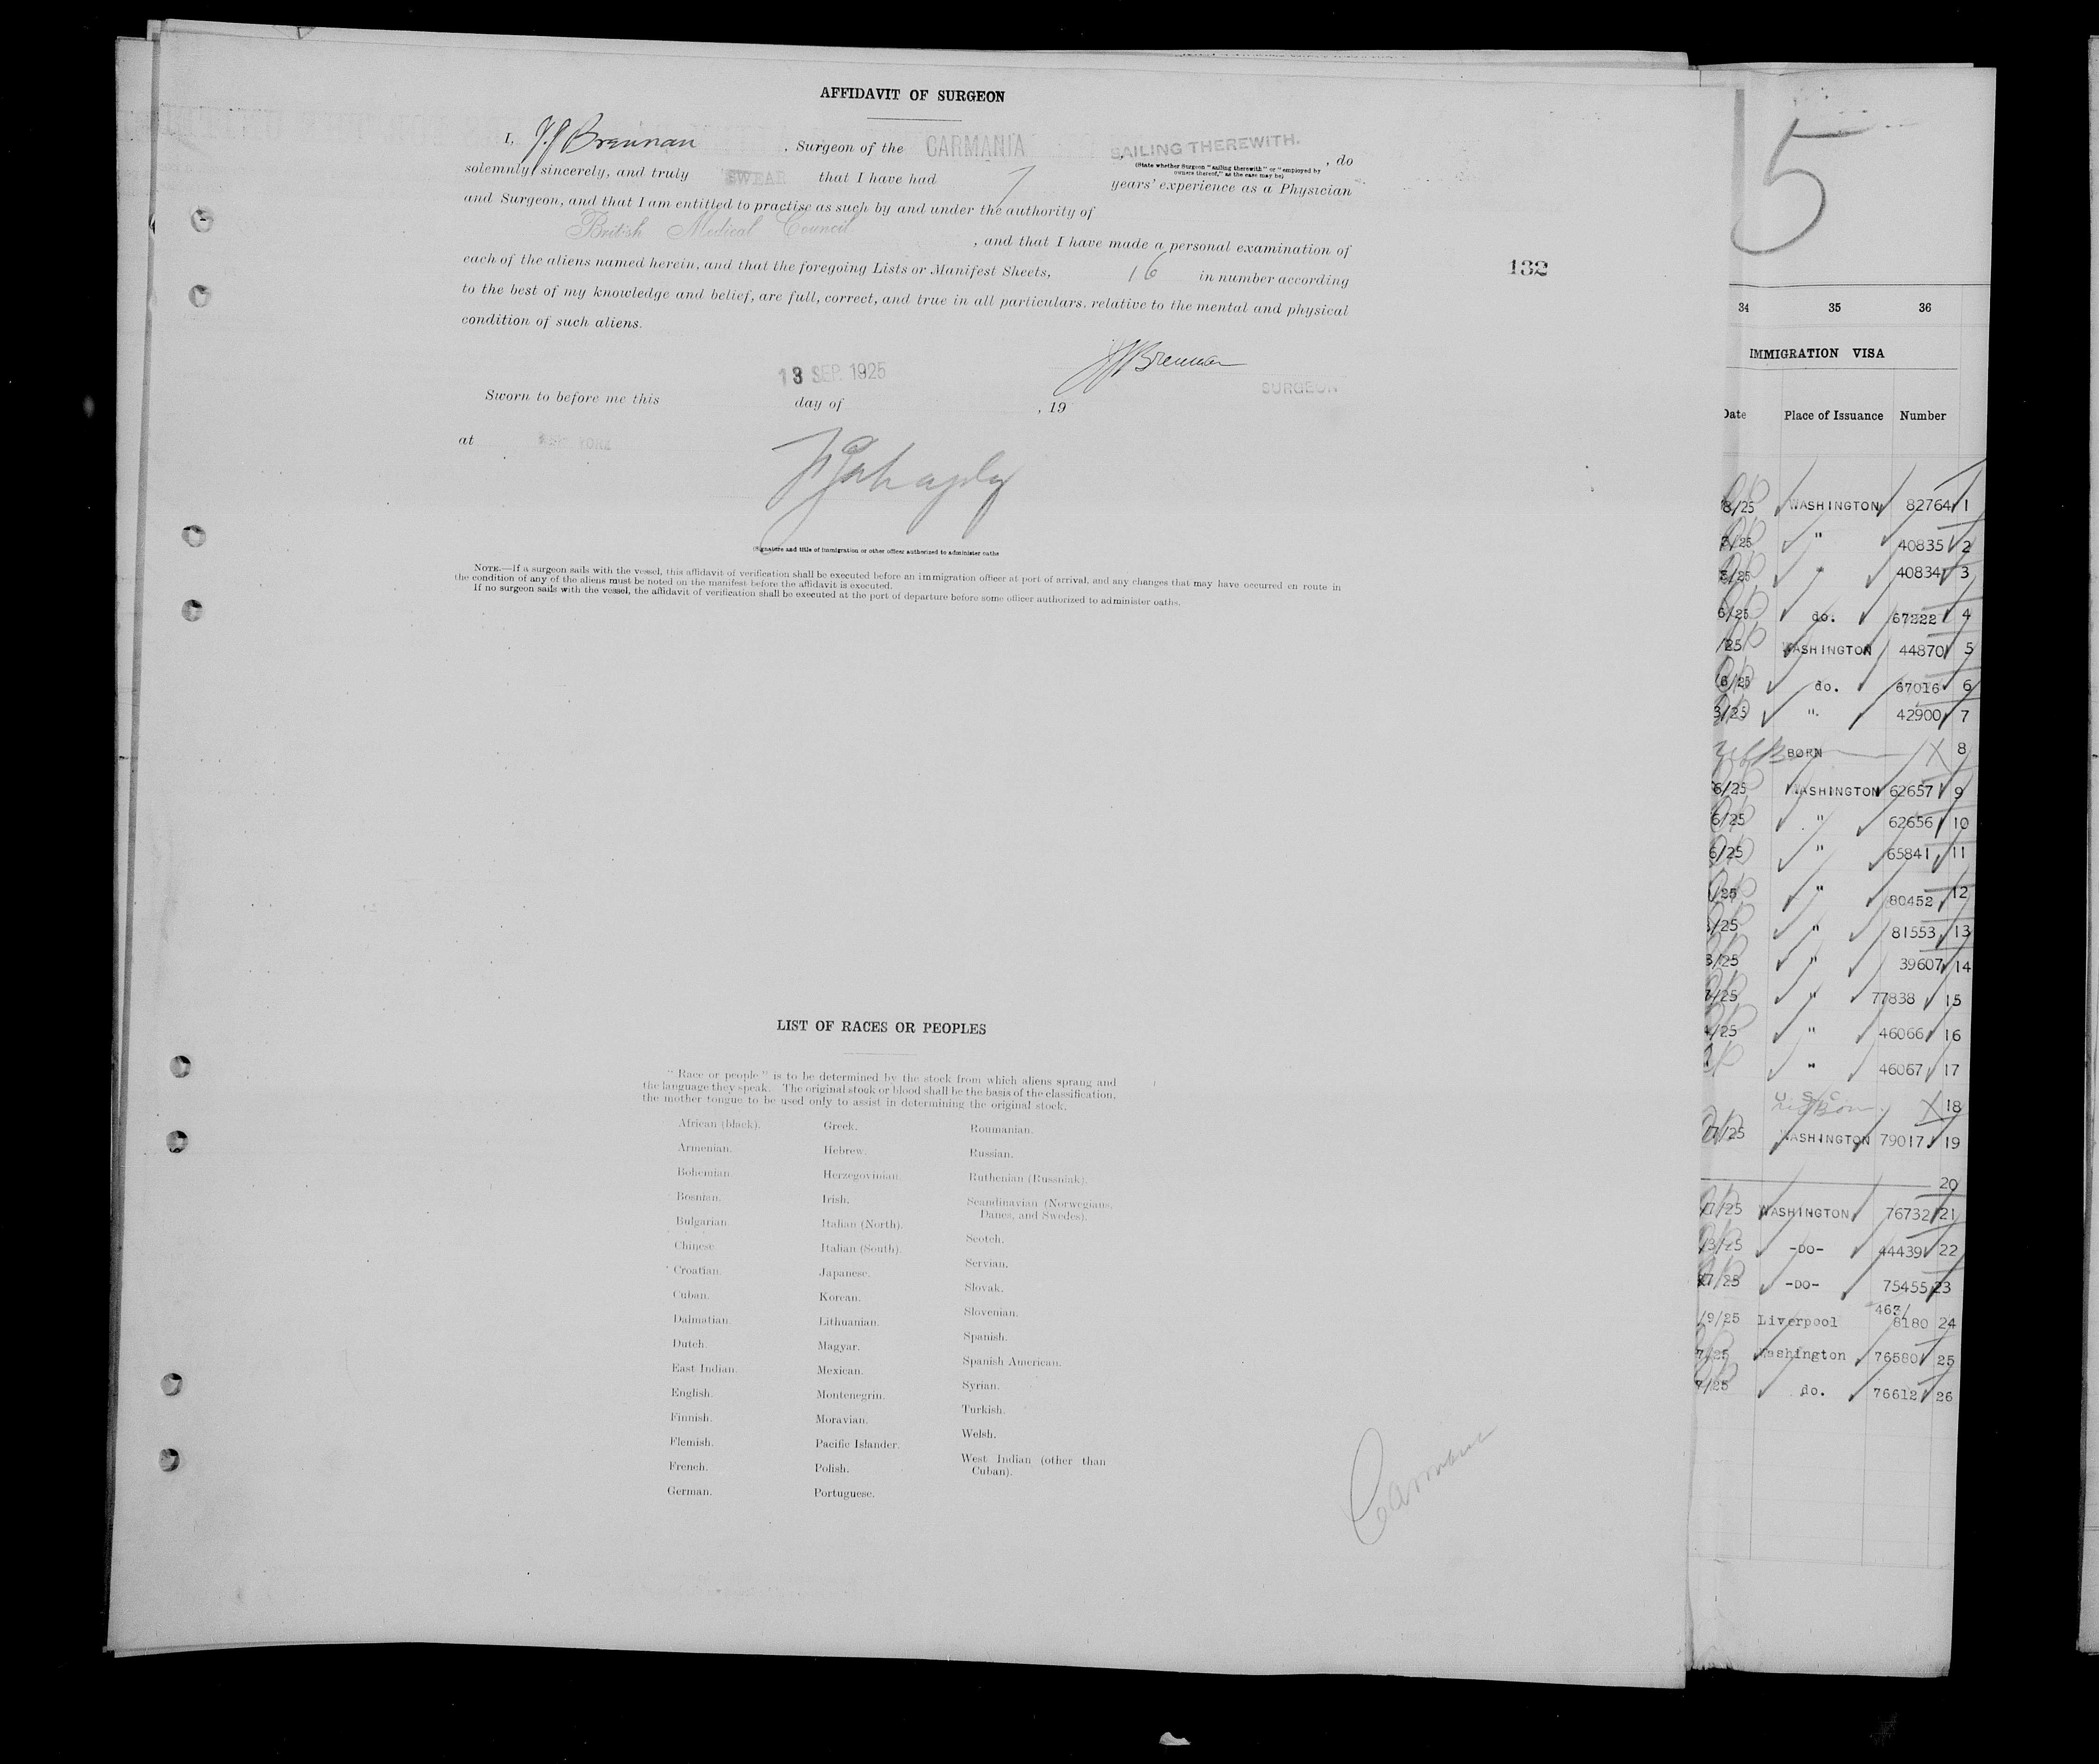 AFFIDAVIT OF SURGEON
I, J.J. Brennan, Surgeon of the CARMANIA SAILING THEREWITH. , do
(State whether Surgeon "sailing therewith" or "employed by
owners thereof," as the case may be)
solemnly, sincerely, and truly SWEAR that I have had 7 years' experience as a Physician
and Surgeon, and that I am entitled to practise as such by and under the authority of
British Medical Council , and that I have made a personal examination of
each of the aliens named herein, and that the foregoing Lists or Manifest Sheets, 16 in number according
to the best of my knowledge and belief, are full, correct, and true in all particulars, relative to the mental and physical
condition of such aliens.
132
JJ Brennan
SURGEON
13 SEP. 1925
Sworn to before me this day of , 19
at NEW YORK
(Signature and title of immigration or other officer authorized to administer oaths
NOTE.—If a surgeon sails with the vessel, this affidavit of verification shall be executed before an immigration officer at port of arrival, and any changes that may have occurred en route in
the condition of any of the aliens must be noted on the manifest before the affidavit is executed.
If no surgeon sails with the vessel, the affidavit of verification shall be executed at the port of departure before some officer authorized to administer oaths.
LIST OF RACES OR PEOPLES
"Race or people" is to be determined by the stock from which aliens sprang and
the language they speak. The original stock or blood shall be the basis of the classification,
the mother tongue to be used only to assist in determining the original stock.
African (black). Greek. Roumanian.
Armenian. Hebrew. Russian.
Bohemian. Herzegovinian. Ruthenian (Russniak).
Bosnian. Irish. Scandinavian (Norwegians,
Danes, and Swedes).
Bulgarian. Italian (North). Scotch.
Chinese. Italian (South). Servian.
Croatian. Japanese. Slovak.
Cuban. Korean. Slovenian.
Dalmatian. Lithuanian. Spanish.
Dutch. Magyar. Spanish American.
East Indian. Mexican. Syrian.
English. Montenegrin. Turkish.
Finnish. Moravian. Welsh.
Flemish. Pacific Islander. West Indian (other than
Cuban).
French. Polish.
German. Portuguese.
Carmania
5
34 35 36
IMMIGRATION VISA
Date Place of Issuance Number
8/25 WASHINGTON 82764 1
/25 " 40835 2
/25 " 40834 3
6/25 do. 67222 4
/25 WASHINGTON 44870 5
6/25 do. 67016 6
3/25 " 42900 7
BORN X 8
6/25 WASHINGTON 62657 9
6/25 " 62656 10
6/25 " 65841 11
/25 " 80452 12
/25 " 81553 13
3/25 " 39607 14
7/25 " 77838 15
/25 " 46066 16
" 46067 17
U. S. C. X 18
7/25 WASHINGTON 79017 19
20
7/25 WASHINGTON 76732 21
3/25 -DO- 44439 22
7/25 -DO- 75455 23
/9/25 Liverpool 463/
8180 24
7/25 Washington 76580 25
7/25 do. 76612 26